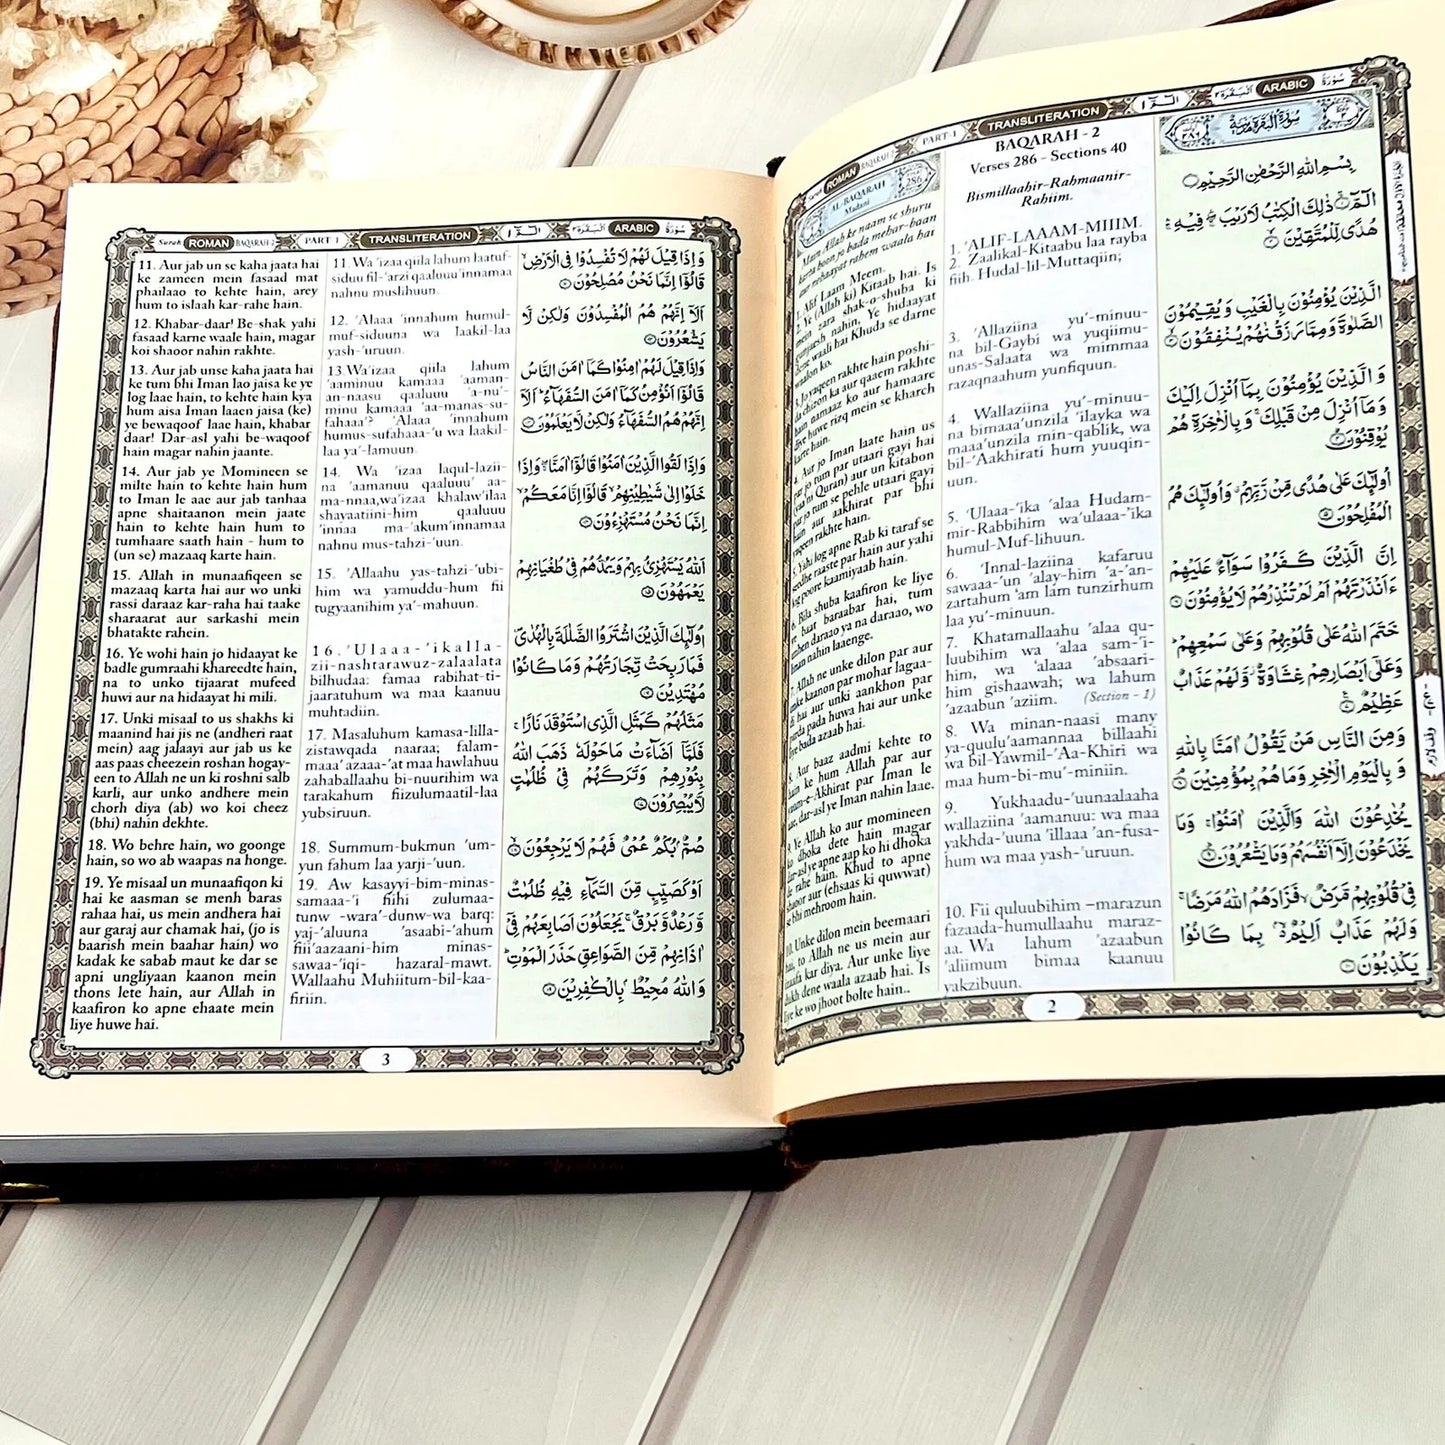 Surah ROMAN BAQARAH-2 PART-1 TRANSLITERATION الٓمّٓ ١ البقرة ٢ ARABIC سورة
AL-BAQARAH
Madani
286
Main Allah ke naam se shuru
karta hoon jo bada mehar-baan
aur nehaayat rahem waala hai
1. Alif Laam Meem.
2. Ye (Allah ki) Kitaab hai. Is
mein zara shak-o-shuba ki
gunjaesh nahin, Ye hidaayat
dene waali hai Khuda se darne
waalon ko.
3. Jo yaqeen rakhte hain poshi-
da chizon ka aur qaaem rakhte
hain namaaz ko aur hamaare
diye huwe rizq mein se kharch
karte hain.
4. Aur jo Iman laate hain us
par jo tum par utaari gayi hai
(yaahi Quran) aur un kitabon
par jo tum se pehle utaari gayi
hain aur aakhirat par bhi
yaqeen rakhte hain.
5. Yahi log apne Rab ki taraf se
seedhe raaste par hain aur yahi
log poore kaamiyaab hain.
6. Bila shuba kaafiron ke liye
baat baraabar hai, tum
unhen daraao ya na daraao, wo
Iman nahin laaenge.
7. Allah ne unke dilon par aur
unke kaanon par mohar lagaa-
di hai aur unki aankhon par
parda pada huwa hai aur unke
liye bada azaab hai.
8. Aur baaz aadmi kehte to
hain ke hum Allah par aur
Iman le
aae, dar-asl ye Iman nahin laae.
9. Ye Allah ko aur momineen
ko dhoka dete hain magar
dar-asl ye apne aap ko hi dhoka
de rahe hain. Khud to apne
shaoor aur (ehsaas ki quwwat)
se bhi mehroom hain.
10. Unke dilon mein beemaari
hai, to Allah ne us mein aur
izaafa kar diya. Aur unke liye
dukh dene waala azaab hai. Is
liye ke wo jhoot bolte hain..
BAQARAH - 2
Verses 286 - Sections 40
Bismillaahir-Rahmaanir-
Rahiim.
1. 'ALIF-LAAAM-MIIIM.
2. Zaalikal-Kitaabu laa rayba
fiih. Hudal-lil-Muttaqiin;
3. 'Allaziina yu'-minuu-
na bil-Gaybi wa yuqiimu-
unas-Salaata wa mimmaa
razaqnaahum yunfiquun.
4. Wallaziina yu'-minuu-
na bimaaa'unzila 'ilayka wa
maaa'unzila min-qablik, wa
bil-'Aakhirati hum yuuqin-
uun.
5. 'Ulaaa-'ika 'alaa Hudam-
mir-Rabbihim wa'ulaaa-'ika
humul-Muf-lihuun.
6. 'Innal-laziina kafaruu
sawaaa-'un 'alay-him 'a-'an-
zartahum 'am lam tunzirhum
laa yu'-minuun.
7. Khatamallaahu 'alaa qu-
luubihim wa 'alaa sam-'i-
him, wa 'alaaa 'absaari-
him gishaawah; wa lahum
'azaabun 'aziim. (Section - 1)
8. Wa minan-naasi many
ya-quulu'aamannaa billaahi
wa bil-Yawmil-'Aa-Khiri wa
maa hum-bi-mu'-miniin.
9. Yukhaadu-'uunaalaaha
wallaziina 'aamanuu: wa maa
yakhda-'uuna 'illaaa 'an-fusa-
hum wa maa yash-'uruun.
10. Fii quluubihim –marazun
fazaada-humullaahu maraz-
aa. Wa lahum 'azaabun
'aliimum bimaa kaanuu
yakzibuun.
سورة البقرة مدنية
٢٨٦
بِسْمِ اللهِ الرَّحْمٰنِ الرَّحِيْمِ
الٓمّٓ ذٰلِكَ الْكِتٰبُ لَا رَيْبَ ۛ فِيْهِ ۛ
هُدًى لِّلْمُتَّقِيْنَ ۝٢
الَّذِيْنَ يُؤْمِنُوْنَ بِالْغَيْبِ وَ يُقِيْمُوْنَ
الصَّلٰوةَ وَمِمَّا رَزَقْنٰهُمْ يُنْفِقُوْنَ ۝٣
وَ الَّذِيْنَ يُؤْمِنُوْنَ بِمَآ اُنْزِلَ اِلَيْكَ
وَ مَآ اُنْزِلَ مِنْ قَبْلِكَ ۚ وَ بِالْاٰخِرَةِ هُمْ
يُوْقِنُوْنَ ۝٤
اُولٰٓئِكَ عَلٰى هُدًى مِّنْ رَّبِّهِمْ ۗ وَ اُولٰٓئِكَ هُمُ
الْمُفْلِحُوْنَ ۝٥
اِنَّ الَّذِيْنَ كَفَرُوْا سَوَآءٌ عَلَيْهِمْ
ءَاَنْذَرْتَهُمْ اَمْ لَمْ تُنْذِرْهُمْ لَا يُؤْمِنُوْنَ ۝٦
خَتَمَ اللهُ عَلٰى قُلُوْبِهِمْ وَعَلٰى سَمْعِهِمْ ؕ
وَعَلٰٓى اَبْصَارِهِمْ غِشَاوَةٌ ؗ وَّلَهُمْ عَذَابٌ
عَظِيْمٌ ۝٧
وَمِنَ النَّاسِ مَنْ يَّقُوْلُ اٰمَنَّا بِاللهِ
وَ بِالْيَوْمِ الْاٰخِرِ وَمَا هُمْ بِمُؤْمِنِيْنَ ۝٨
يُخٰدِعُوْنَ اللهَ وَالَّذِيْنَ اٰمَنُوْا ۚ وَمَا
يَخْدَعُوْنَ اِلَّآ اَنْفُسَهُمْ وَمَا يَشْعُرُوْنَ ۝٩
فِيْ قُلُوْبِهِمْ مَّرَضٌ ۙ فَزَادَهُمُ اللهُ مَرَضًا ۚ
وَلَهُمْ عَذَابٌ اَلِيْمٌ ۢ ۙ بِمَا كَانُوْا
يَكْذِبُوْنَ ۝١٠
2
Surah ROMAN BAQARAH-2 PART 1 TRANSLITERATION الٓمّٓ ١ البقرة ٢ ARABIC سورة
11. Aur jab un se kaha jaata hai
ke zameen mein fasaad mat
phailaao to kehte hain, arey
hum to islaah kar-rahe hain.
12. Khabar-daar! Be-shak yahi
fasaad karne waale hain, magar
koi shaoor nahin rakhte.
13. Aur jab unse kaha jaata hai
ke tum bhi Iman lao jaisa ke ye
log laae hain, to kehte hain kya
hum aisa Iman laaen jaisa (ke)
ye bewaqoof laae hain, khabar
daar! Dar-asl yahi be-waqoof
hain magar nahin jaante.
14. Aur jab ye Momineen se
milte hain to kehte hain hum
to Iman le aae aur jab tanhaa
apne shaitaanon mein jaate
hain to kehte hain hum to
tumhaare saath hain - hum to
(un se) mazaaq karte hain.
15. Allah in munaafiqeen se
mazaaq karta hai aur wo unki
rassi daraaz kar-raha hai taake
sharaarat aur sarkashi mein
bhatakte rahein.
16. Ye wohi hain jo hidaayat ke
badle gumraahi khareedte hain,
na to unko tijaarat mufeed
huwi aur na hidaayat hi mili.
17. Unki misaal to us shakhs ki
maanind hai jis ne (andheri raat
mein) aag jalaayi aur jab us ke
aas paas cheezein roshan hogay-
een to Allah ne un ki roshni salb
karli, aur unko andhere mein
chorh diya (ab) wo koi cheez
(bhi) nahin dekhte.
18. Wo behre hain, wo goonge
hain, so wo ab waapas na honge.
19. Ye misaal un munaafiqon ki
hai ke aasman se menh baras
rahaa hai, us mein andhera hai
aur garaj aur chamak hai, (jo is
baarish mein baahar hain) wo
kadak ke sabab maut ke dar se
apni ungliyaan kaanon mein
thons lete hain, aur Allah in
kaafiron ko apne ehaate mein
liye huwe hai.
11. Wa 'izaa qiila lahum laatuf-
siduu fil-'arzi qaaluuu'innamaa
nahnu muslihuun.
12. 'Alaaa 'innahum humul-
muf-siduuna wa laakil-laa
yash-'uruun.
13.Wa'izaa qiila lahum
'aaminuu kamaaa 'aaman-
an-naasu qaaluuu 'a-nu'-
minu kamaaa 'aa-manas-su-
fahaaa'? 'Alaaa 'innahum
humus-sufahaaa-'u wa laakil-
laa ya'-lamuun.
14. Wa 'izaa laqul-lazii-
na 'aamanuu qaaluuu' aa-
ma-nnaa,wa'izaa khalaw'ilaa
shayaatiini-him qaaluuu
'innaa ma-'akum'innamaa
nahnu mus-tahzi-'uun.
15. 'Allaahu yas-tahzi-'ubi-
him wa yamuddu-hum fii
tugyaanihim ya'-mahuun.
16. 'Ulaaa-'ikalla-
zii-nashtarawuz-zalaalata
bilhudaa: famaa rabihat-ti-
jaaratuhum wa maa kaanuu
muhtadiin.
17. Masaluhum kamasa-lilla-
zistawqada naaraa; falam-
maaa' azaaa-'at maa hawlahuu
zahaballaahu bi-nuurihim wa
tarakahum fiizulumaatil-laa
yubsiruun.
18. Summum-bukmun 'um-
yun fahum laa yarji-'uun.
19. Aw kasayyi-bim-minas-
samaaa-'i fiihi zulumaa-
tunw -wara'-dunw-wa barq:
yaj-'aluuna 'asaabi-'ahum
fiii'aazaani-him minas-
sawaa-'iqi- hazaral-mawt.
Wallaahu Muhiitum-bil-kaa-
firiin.
وَ اِذَا قِيْلَ لَهُمْ لَا تُفْسِدُوْا فِي الْاَرْضِ ۙ
قَالُوْٓا اِنَّمَا نَحْنُ مُصْلِحُوْنَ ۝١١
اَلَآ اِنَّهُمْ هُمُ الْمُفْسِدُوْنَ وَلٰكِنْ لَّا
يَشْعُرُوْنَ ۝١٢
وَ اِذَا قِيْلَ لَهُمْ اٰمِنُوْا كَمَآ اٰمَنَ النَّاسُ
قَالُوْٓا اَنُؤْمِنُ كَمَآ اٰمَنَ السُّفَهَآءُ ؕ اَلَآ
اِنَّهُمْ هُمُ السُّفَهَآءُ وَلٰكِنْ لَّا يَعْلَمُوْنَ ۝١٣
وَ اِذَا لَقُوا الَّذِيْنَ اٰمَنُوْا قَالُوْٓا اٰمَنَّا ۖۚ وَاِذَا
خَلَوْا اِلٰى شَيٰطِيْنِهِمْ ۙ قَالُوْٓا اِنَّا مَعَكُمْ ۙ
اِنَّمَا نَحْنُ مُسْتَهْزِءُوْنَ ۝١٤
اَللهُ يَسْتَهْزِئُ بِهِمْ وَيَمُدُّهُمْ فِيْ طُغْيَانِهِمْ
يَعْمَهُوْنَ ۝١٥
اُولٰٓئِكَ الَّذِيْنَ اشْتَرَوُا الضَّلٰلَةَ بِالْهُدٰى ۪
فَمَا رَبِحَتْ تِّجَارَتُهُمْ وَمَا كَانُوْا
مُهْتَدِيْنَ ۝١٦
مَثَلُهُمْ كَمَثَلِ الَّذِي اسْتَوْقَدَ نَارًا ۚ
فَلَمَّآ اَضَآءَتْ مَا حَوْلَهٗ ذَهَبَ اللهُ
بِنُوْرِهِمْ وَتَرَكَهُمْ فِيْ ظُلُمٰتٍ
لَّا يُبْصِرُوْنَ ۝١٧
صُمٌّ ۢ بُكْمٌ عُمْيٌ فَهُمْ لَا يَرْجِعُوْنَ ۝١٨
اَوْ كَصَيِّبٍ مِّنَ السَّمَآءِ فِيْهِ ظُلُمٰتٌ
وَّ رَعْدٌ وَّ بَرْقٌ ۚ يَجْعَلُوْنَ اَصَابِعَهُمْ فِيْٓ
اٰذَانِهِمْ مِّنَ الصَّوَاعِقِ حَذَرَ الْمَوْتِ ؕ
وَاللهُ مُحِيْطٌ ۢ بِالْكٰفِرِيْنَ ۝١٩
3